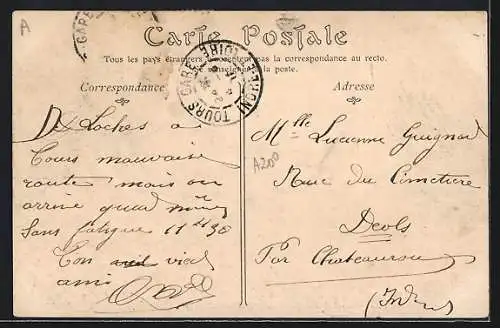 A
GARE
Carte Postale
Tous les pays étrangers n'acceptent pas la correspondance au recto.
à la poste.
TOURS GARE
LOIRE
Correspondance
Adresse
De Loches a
Tours mauvaise
route mais on
arrive quand même
Sans fatigue 11 h 30
Ton vieil
ami
A200
Mlle Lucienne Guignard
Rue du Cimetière
Deols
Par Chateauroux
(Indre)